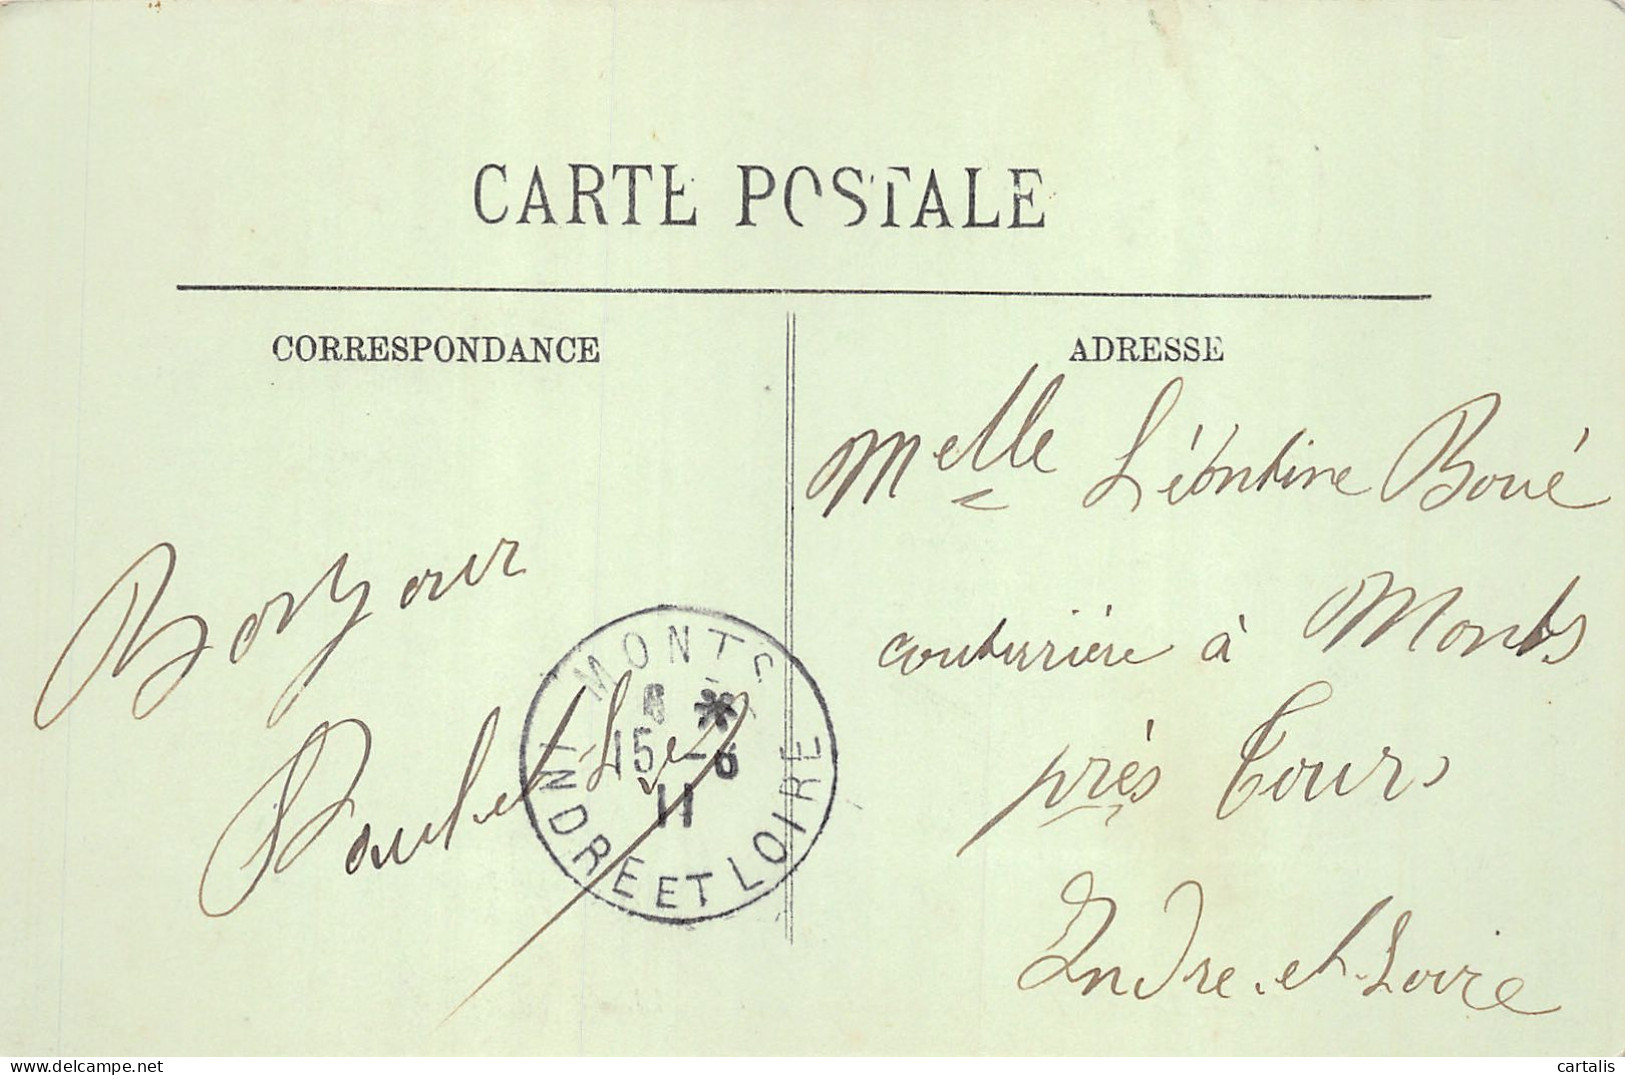 CARTE POSTALE
CORRESPONDANCE
ADRESSE
Melle Léontine Boué
couturière à Monts
près Tours
Indre-et-Loire
Bonjour
MONTS
15 - 6
11
INDRE ET LOIRE
delcampe.net
cartalis